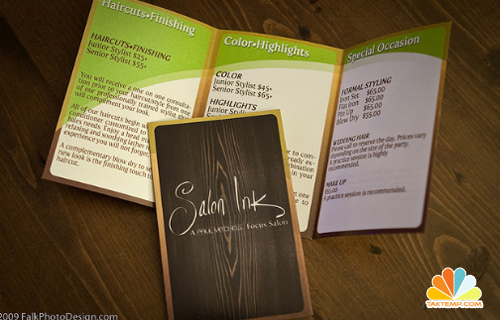 Haircuts•Finishing
HAIRCUTS•FINISHING
Junior Stylist $25+
Senior Stylist $55+
You will receive a one on one consulta-
tion prior to your haircut/style from one
of our professionally trained stylist that
will compliment you look.
All of our haircuts begin
conditioner customized
hairs needs. Enjoy a head
relaxing and soothing lather
experience you will not forget.
A complementary blow dry to
new look is the finishing touch to
haircut.
Color•Highlights
COLOR
Junior Stylist $45+
Senior Stylist $65+
HIGHLIGHTS
Junior Stylist
Special Occasion
FORMAL STYLING
Iron Set $65.00
Flat Iron $65.00
Pin Up $65.00
Blow Dry $55.00
WEDDING HAIR
Please call to reserve the day. Princes vary
depending on the size of the party.
A practice session is highly
recommended.
MAKE UP
$55.00
A practice session is recommended.
Salon Ink
A PAUL MITCHELL Focus Salon
2009 FalkPhotoDesign.com
TAKTEMP.COM